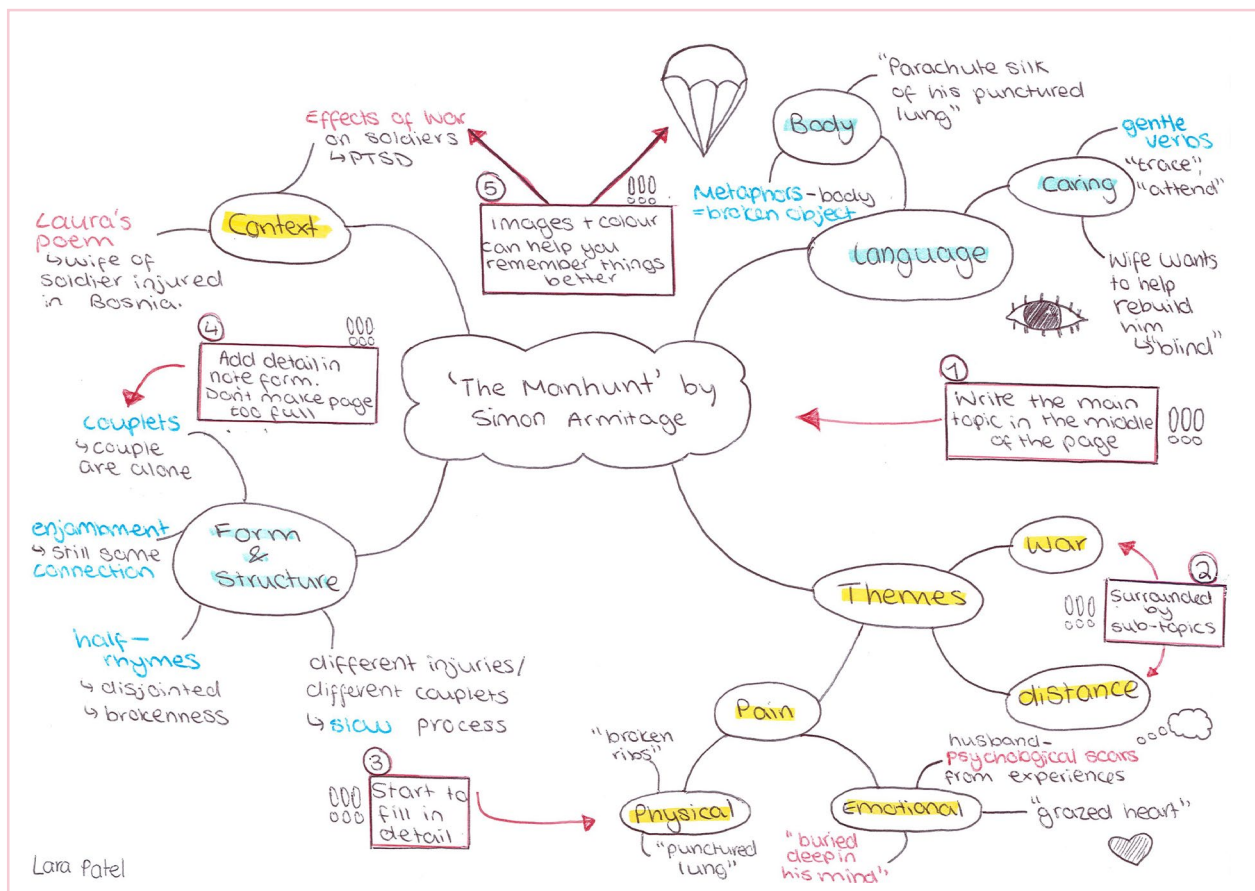 'The Manhunt' by
Simon Armitage
Context
Effects of War
on soldiers
↳PTSD
Laura's
poem
↳wife of
soldier injured
in Bosnia.
⑤
images + colour
can help you
remember things
better
Language
Body
"Parachute silk
of his punctured
lung"
Metaphors-body
=broken object
Caring
gentle
verbs
"trace",
"attend"
Wife wants
to help
rebuild
him
↳"blind"
①
Write the main
topic in the middle
of the page
④
Add detail in
note form.
Don't make page
too full
Form
&
Structure
couplets
↳couple
are alone
enjambment
↳still some
connection
half-
rhymes
↳disjointed
↳brokenness
different injuries/
different couplets
↳slow process
Themes
War
②
surrounded
by
sub-topics
distance
Pain
③
Start to
fill in
detail
Physical
"broken
ribs"
"punctured
lung"
Emotional
husband-
psychological scars
from experiences
"grazed heart"
"buried
deep in
his mind"
Lara Patel